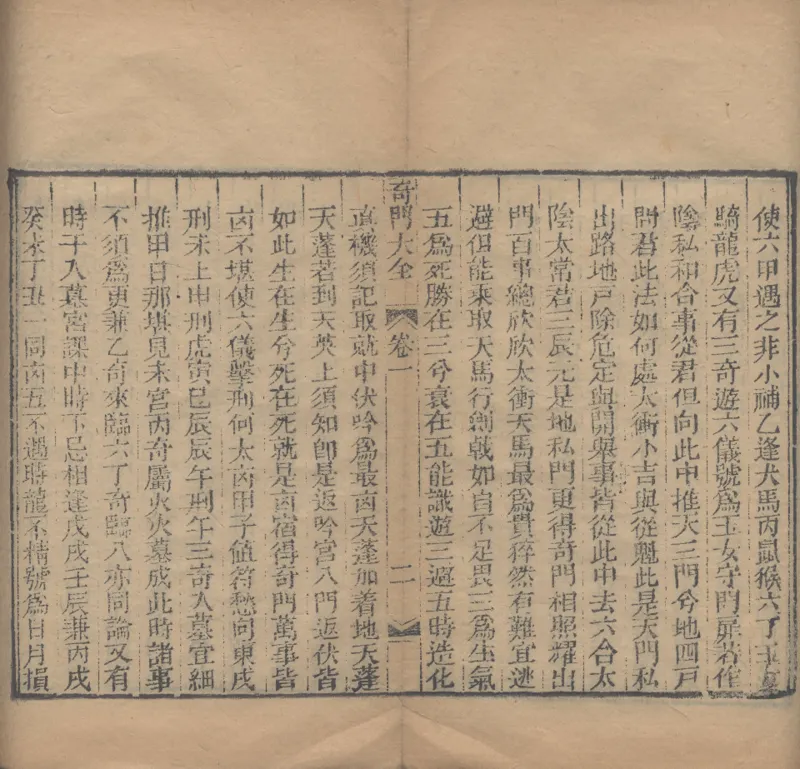 使六甲遇之非小補乙逢犬馬丙鼠猴六丁玉
騎龍虎又有三奇遊六儀號爲玉女守門扉若作
陰私和合事從君但向此中推天三門兮地四戸
問君此法如何處太衝小吉與從魁此是天門私
出路地戸除危定與開舉事皆從此中去六合太
陰太常君三辰元是地私門更得奇門相照耀出
門百事總欣欣太衝天馬最爲貴猝然有難宜逃
避但能乘取天馬行劍戟如自不足畏三爲生氣
五爲死勝在三兮衰在五能識遊三避五時造化
奇門大全 卷一 二
真機須記取就中伏吟爲最凶天蓬加着地天蓬
天蓬若到天英上須知卽是返吟宮八門返伏皆
如此生在生兮死在死就是凶宿得奇門萬事皆
凶不堪使六儀擊刑何太凶甲子値符愁向東戌
刑未上申刑虎寅巳辰辰午刑午三奇入墓宜細
推甲日那堪見未宮丙奇屬火火墓戌此時諸事
不須爲更兼乙奇來臨六丁奇臨八亦同論又有
時干入墓宮課中時下忌相逢戊戌壬辰兼丙戌
癸未丁丑一同凶五不遇時龍不精號爲日月損